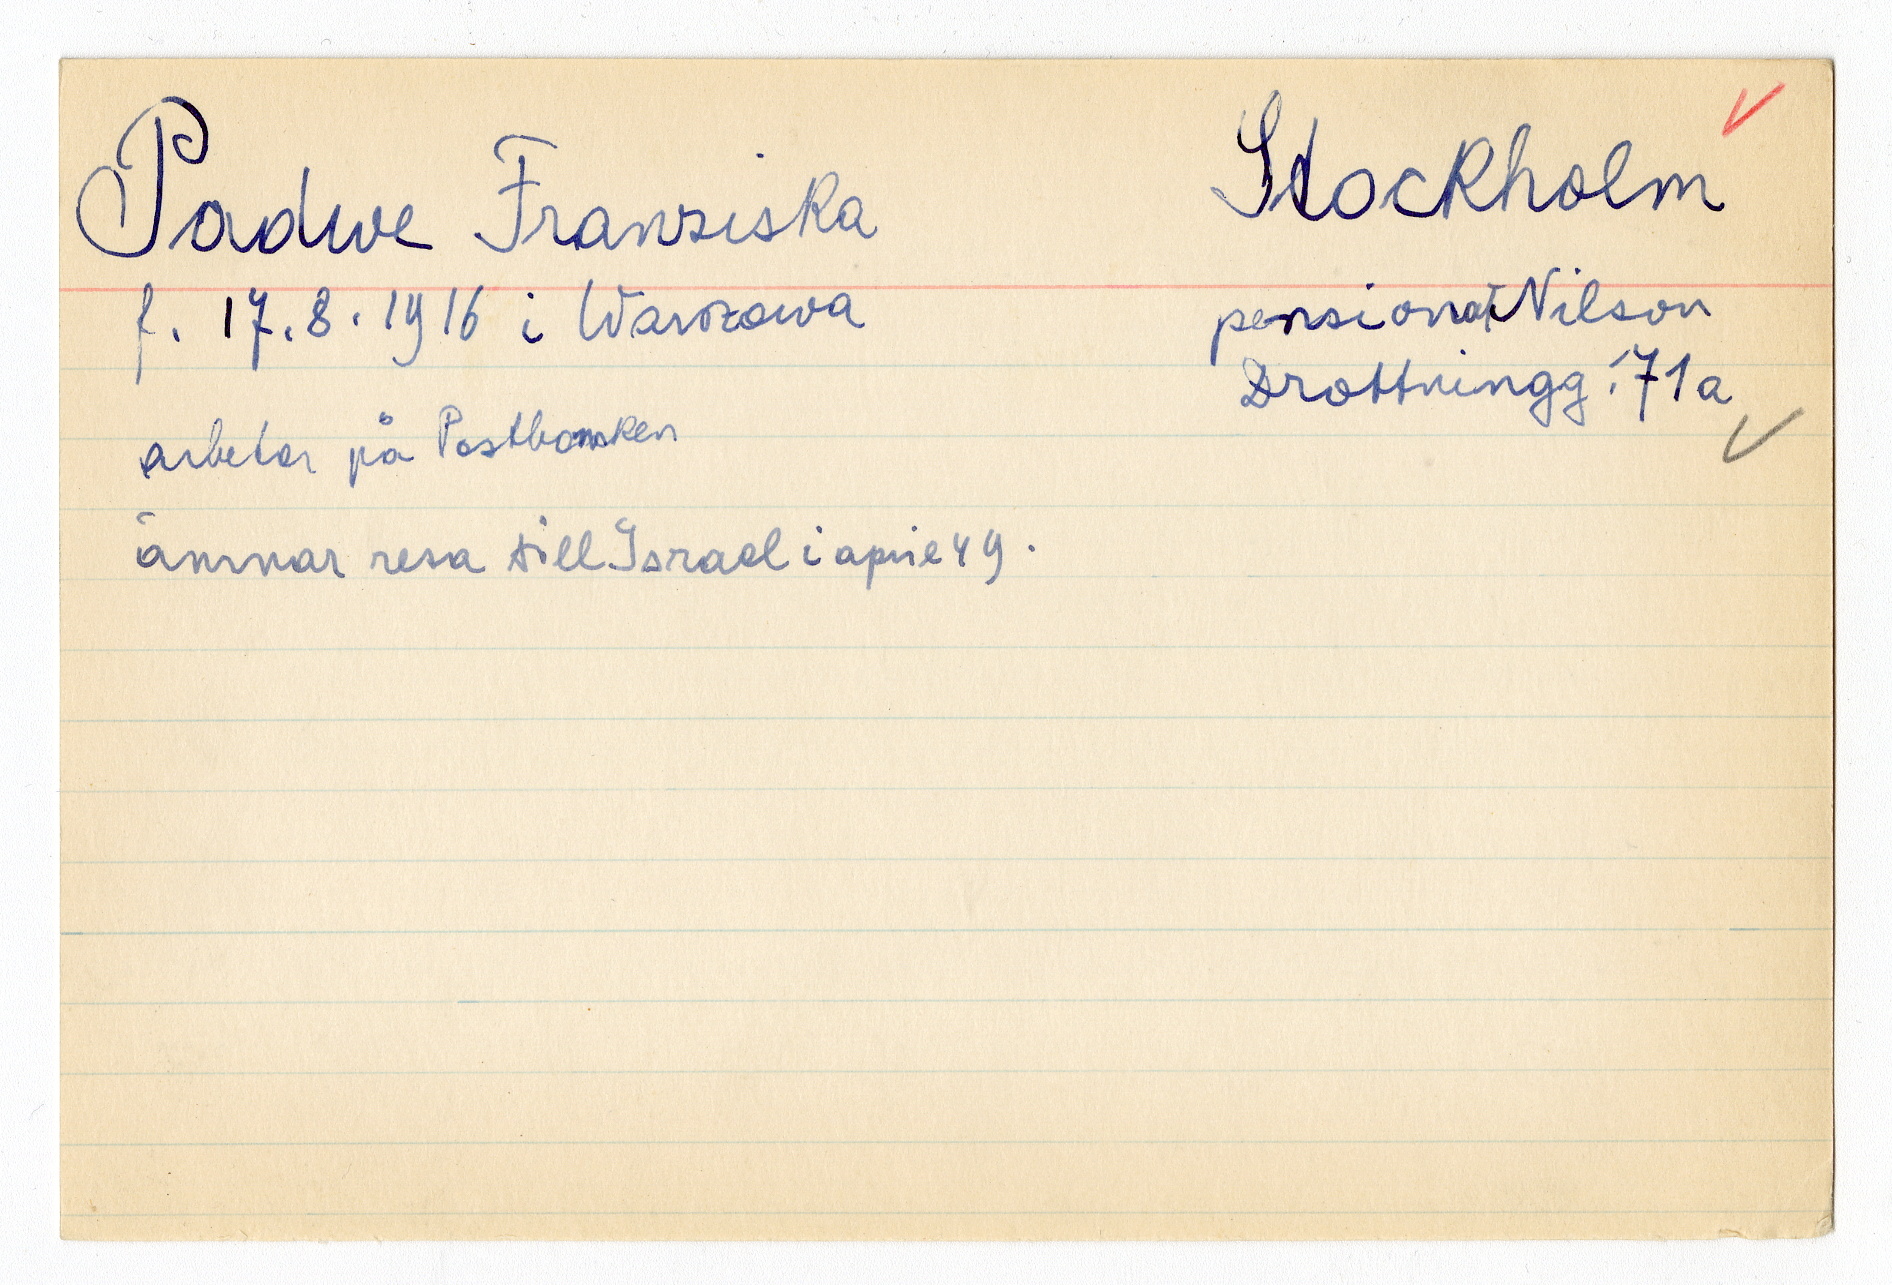 Padwe Franziska
Stockholm
f. 17.8.1916 i Warszawa
pensionat Nilson
Drottningg. 71a
arbetar på Postbanken
ämnar resa till Israel i april 49.